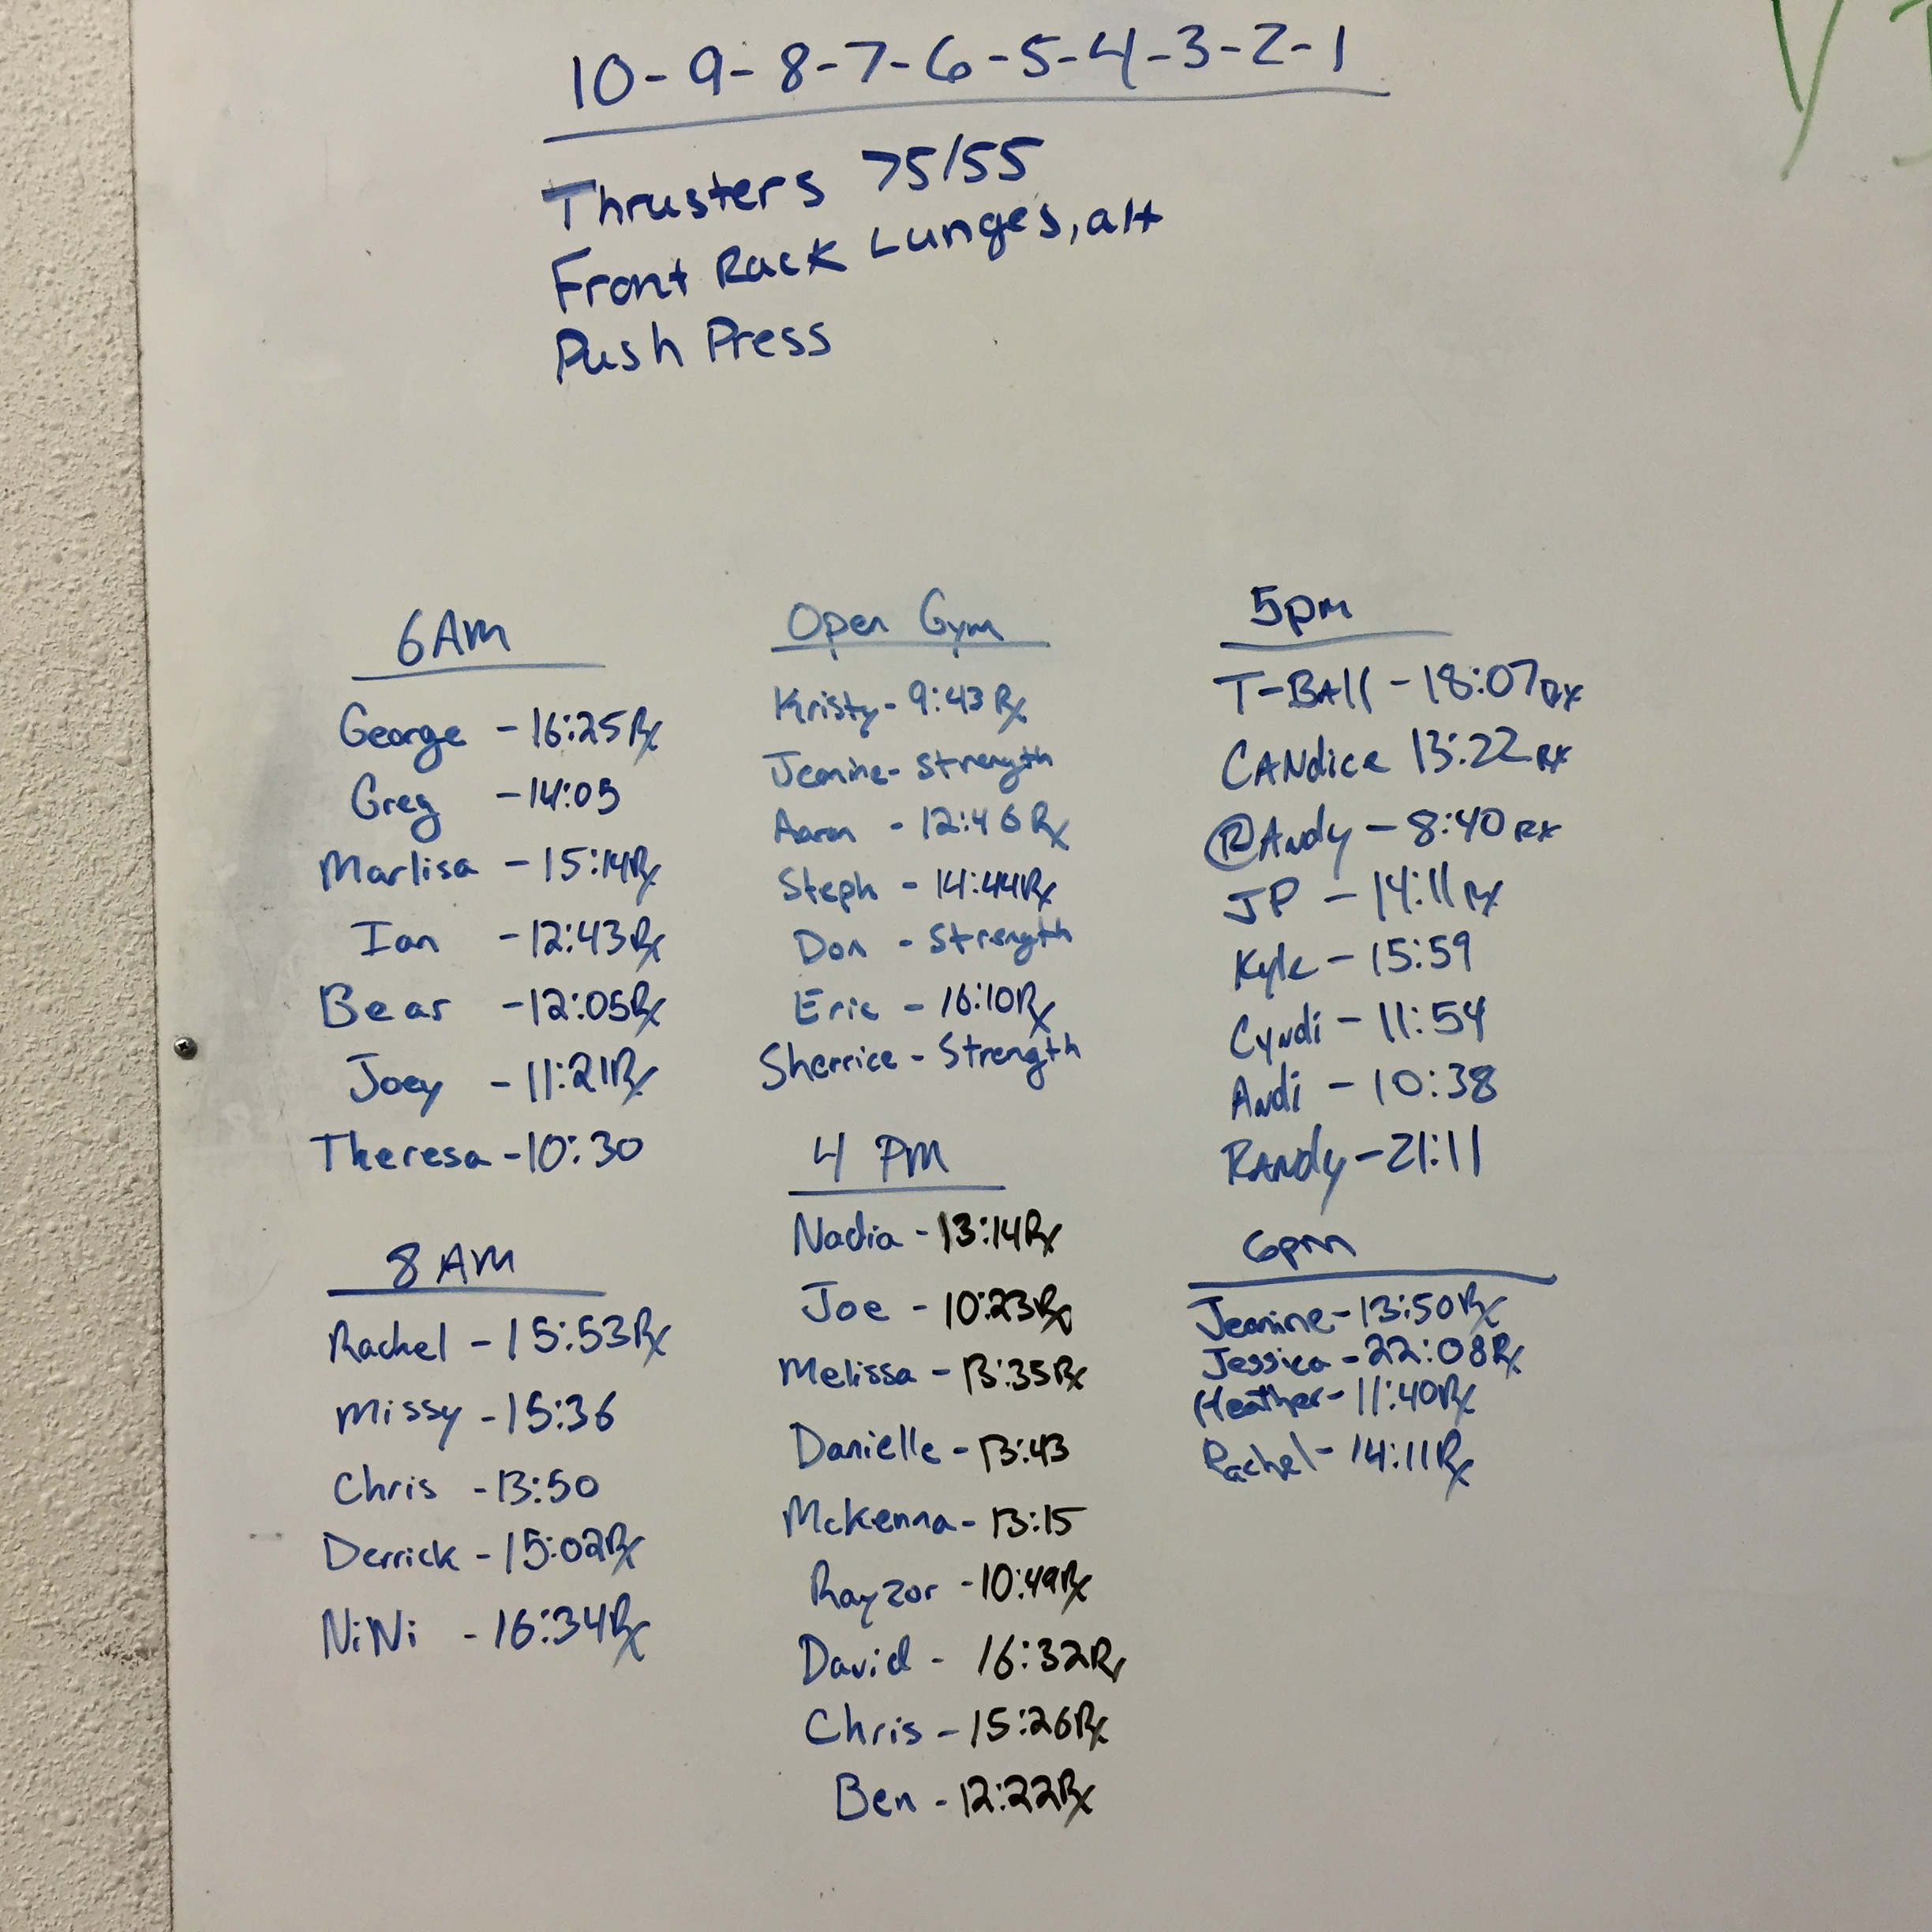 10-9-8-7-6-5-4-3-2-1
Thrusters 75/55
Front Rack Lunges, alt
Push Press
6AM
George - 16:25Rx
Greg - 14:05
Marlisa - 15:14Rx
Ian - 12:43Rx
Bear - 12:05Rx
Joey - 11:21Rx
Theresa - 10:30
8 AM
Rachel - 15:53Rx
Missy - 15:36
Chris - 13:50
Derrick - 15:02Rx
NiNi - 16:34Rx
Open Gym
Kristy - 9:43Rx
Jeanine - Strength
Aaron - 12:46Rx
Steph - 14:44Rx
Don - Strength
Eric - 16:10Rx
Sherrice - Strength
4 PM
Nadia - 13:14Rx
Joe - 10:23Rx
Melissa - 13:35Rx
Danielle - 13:43
McKenna - 13:15
Rayzor - 10:49Rx
David - 16:32Rx
Chris - 15:26Rx
Ben - 12:22Rx
5pm
T-BAll - 18:07Rx
CANdice 13:22Rx
@Andy - 8:40Rx
JP - 14:11Rx
Kyle - 15:59
Cyndi - 11:54
Andi - 10:38
RANdy - 21:11
6pm
Jeanine - 13:50Rx
Jessica - 22:08Rx
Heather - 11:40Rx
Rachel - 14:11Rx